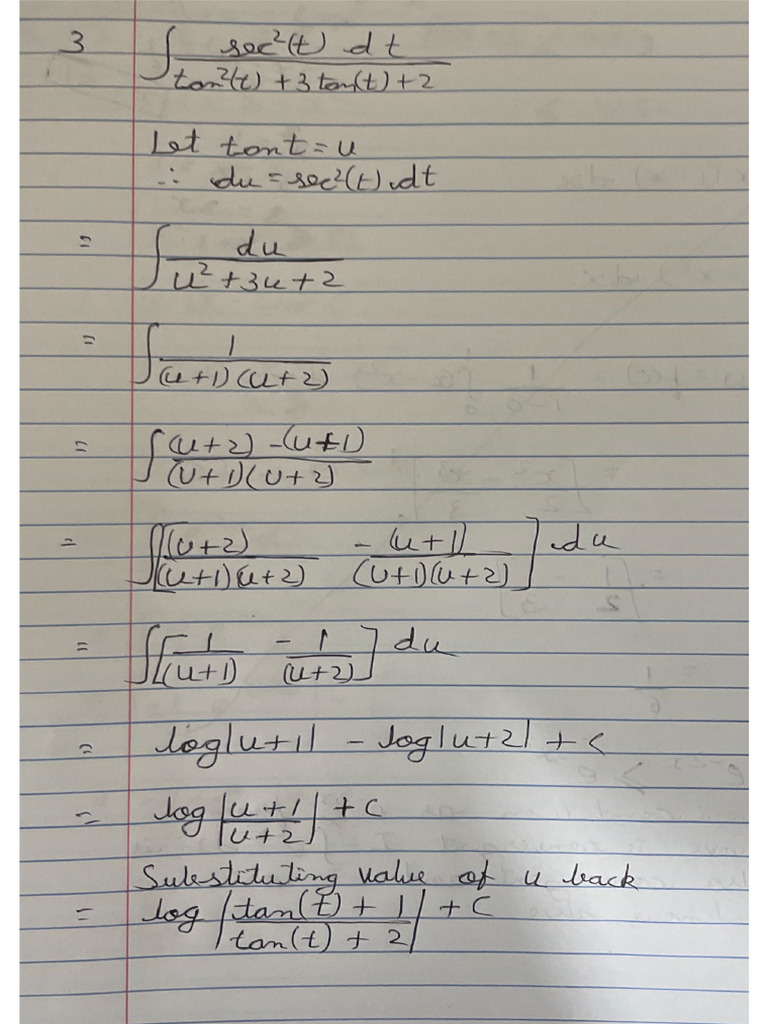 3 ∫ sec²(t) dt / tan²(t) + 3 tan(t) + 2
Let tan t = u
∴ du = sec²(t) dt
= ∫ du / u² + 3u + 2
= ∫ 1 / (u+1) (u+2)
= ∫ (u+2) - (u+1) / (u+1) (u+2)
= ∫ [ (u+2) / (u+1)(u+2) - (u+1) / (u+1)(u+2) ] du
= ∫ [ 1 / (u+1) - 1 / (u+2) ] du
= log|u+1| - log|u+2| + c
= log | u+1 / u+2 | + c
Substituting value of u back
= log | tan(t) + 1 / tan(t) + 2 | + c